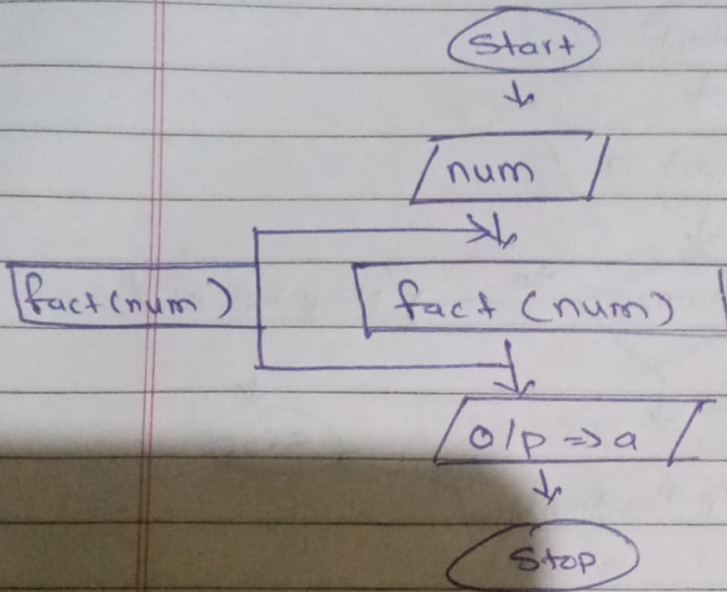 Start
num
fact(num) fact (num)
o/p => a
Stop